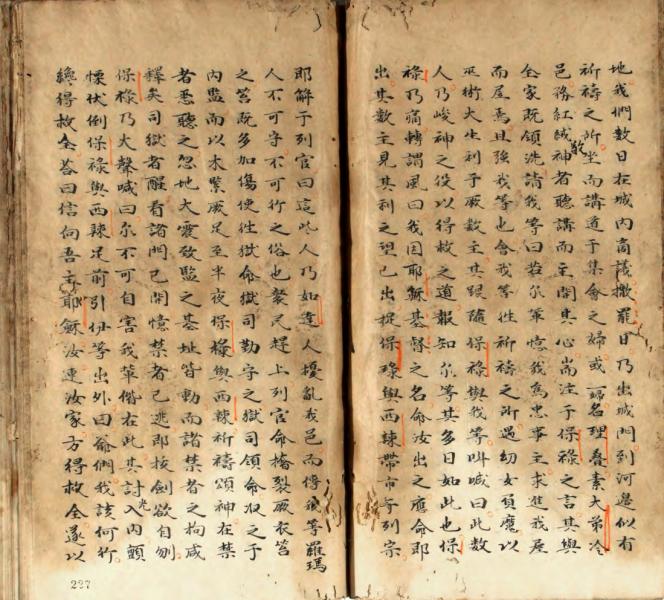 地我們數日在城內商議撒罷日乃出城門到河邊似有
祈禱之所坐而講道于集會之婦或一婦名理疊素大弟冷
邑務紅絨敬神者聽講而主開其心耑注于保祿之言其與
全家既領洗請我等曰若尔輩憶我為忠事主求進我屋
而居焉且强我等也會我等徃祈禱之所遇幼女負魔以
巫術大生利于厥數主其跟隨保祿與我等呌喊曰此數
人乃峻神之役以得救之道報知尔等其多日如此也保
祿乃痛轉謂風曰我因耶穌基督之名命汝出之應命即
出其數主見其利之望已出捉保祿與西辣帶市于列宗
耶觧于列官曰這此人乃如達人擾亂我邑而傳我等羅瑪
人不可守不可行之俗也衆民趕上列官命摧裂厥衣笞
之笞既多加傷使徃獄命獄司勤守之獄司領命収之于
內監而以木緊厥足至半夜保祿與西辣祈禱頌神在禁
者悉聽之忽地大震致監之基址皆動而諸禁者之拘咸
釋矣司獄者醒看諸門已開憶禁者已逃即拔劍欲自刎
保祿乃大聲喊曰尔不可自害我輩偕在此其討光入內顫
慄伏倒保祿與西辣足前引伊等出外曰爺們我該何行
纔得救全答曰信向吾主耶穌汝連汝家方得救全遂以
227